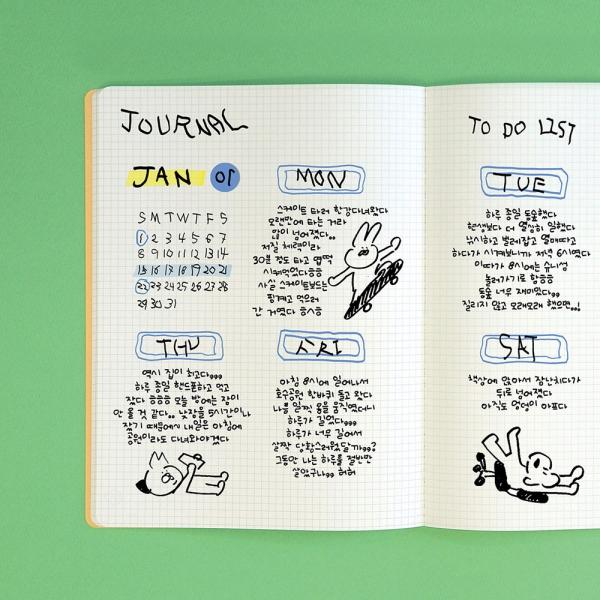 JOURNAL
JAN 01
S M T W T F S
1 2 3 4 5 6 7
8 9 10 11 12 13 14
15 16 17 18 19 20 21
22 23 24 25 26 27 28
29 30 31
MON
스케이트 타러 한강다녀왔다
오랜만에 타는 거라
많이 넘어졌다..
저질 체력이라
30분 정도 타고 엽떡
시켜먹었다ㅎㅎㅎ
사실 스케이트보드는
핑계고 먹으러
간 거였다 ㅎㅅㅎ
THU
역시 집이 최고다,,,
하루 종일 핸드폰하고 먹고
잤다 ㅎㅎㅎ 오늘 밤에는 잠이
안 올 것 같다.. 낮잠을 5시간이나
잤기 때문에 내일은 아침에
공원이라도 다녀와야겠다
FRI
아침 8시에 일어나서
호수공원 한바퀴 돌고 왔다
나름 일찍 몸을 움직였더니
하루가 길었다,,,
하루가 너무 길어서
살짝 당황스러웠달까,,?
그동안 나는 하루를 절반만
살았구나,, 허허
TO DO LIST
TUE
하루 종일 동숲했다
현생보다 더 열심히 일했다
낚시하고 벌레잡고 열매따고
하다가 시계보니까 저녁 6시였다
이따가 8시에는 슈니섬
놀러가기로 함ㅎㅎ
동숲 너무 재미있다,,
질리지 않고 오래오래 했으면..!
SAT
책상에 앉아서 장난치다가
뒤로 넘어졌다
아직도 엉덩이 아프다